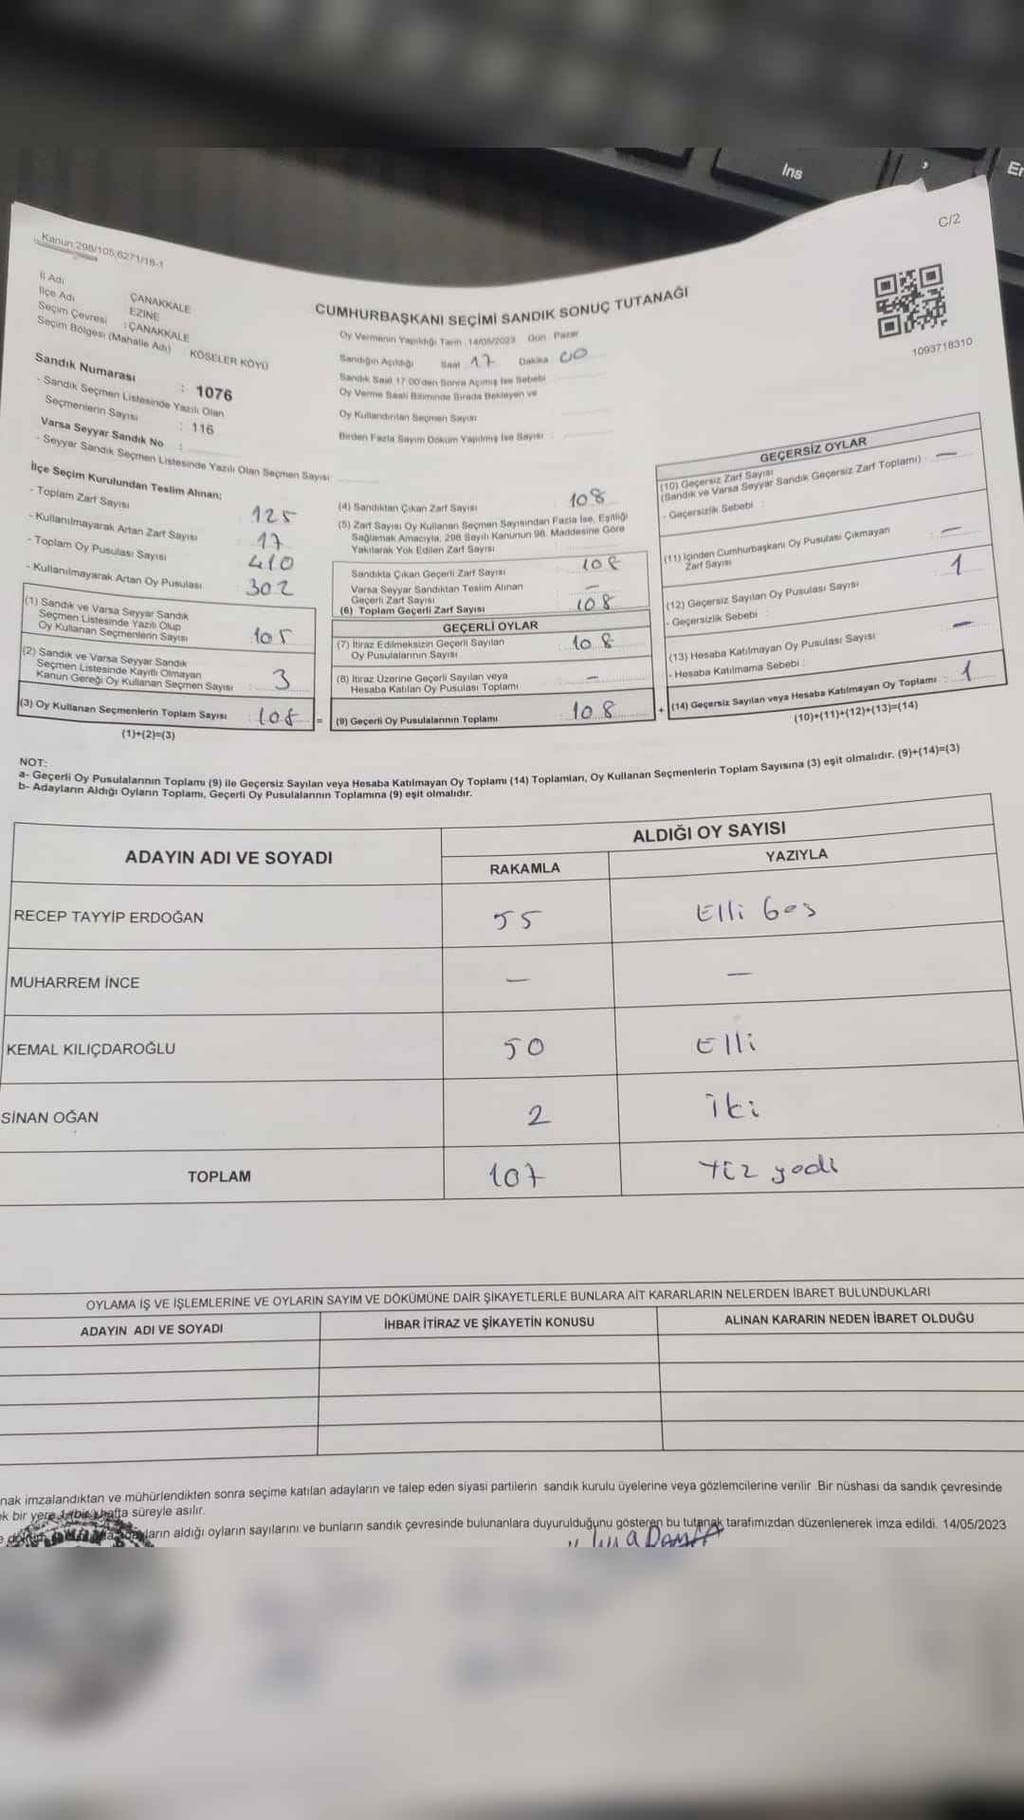 Ins
C/2
Kanun:298/105,6271/18-1
İl Adı ÇANAKKALE
İlçe Adı EZİNE
Seçim Çevresi : ÇANAKKALE
Seçim Bölgesi (Mahalle Adı) : KÖSELER KÖYÜ
CUMHURBAŞKANI SEÇİMİ SANDIK SONUÇ TUTANAĞI
1093718310
Oy Vermenin Yapıldığı Tarih 14/05/2023 Gün Pazar
Sandığın Açıldığı Saat 17 Dakika 00
Sandık Saat 17:00'den Sonra Açılmış İse Sebebi
Oy Verme Saati Bitiminde Sırada Bekleyen ve
Oy Kullandırılan Seçmen Sayısı
Birden Fazla Sayım Döküm Yapılmış İse Sayısı :
Sandık Numarası : 1076
- Sandık Seçmen Listesinde Yazılı Olan
Seçmenlerin Sayısı : 116
Varsa Seyyar Sandık No :
- Seyyar Sandık Seçmen Listesinde Yazılı Olan Seçmen Sayısı :
İlçe Seçim Kurulundan Teslim Alınan:
- Toplam Zarf Sayısı 125
- Kullanılmayarak Artan Zarf Sayısı 17
- Toplam Oy Pusulası Sayısı 410
- Kullanılmayarak Artan Oy Pusulası 302
(1) Sandık ve Varsa Seyyar Sandık
Seçmen Listesinde Yazılı Olup
Oy Kullanan Seçmenlerin Sayısı 105
(2) Sandık ve Varsa Seyyar Sandık
Seçmen Listesinde Kayıtlı Olmayan
Kanun Gereği Oy Kullanan Seçmen Sayısı 3
(3) Oy Kullanan Seçmenlerin Toplam Sayısı 108 =
(1)+(2)=(3)
(4) Sandıktan Çıkan Zarf Sayısı 108
(5) Zarf Sayısı Oy Kullanan Seçmen Sayısından Fazla İse, Eşitliği
Sağlamak Amacıyla, 298 Sayılı Kanunun 98. Maddesine Göre
Yakılarak Yok Edilen Zarf Sayısı
Sandıkta Çıkan Geçerli Zarf Sayısı 108
Varsa Seyyar Sandıktan Teslim Alınan
Geçerli Zarf Sayısı —
(6) Toplam Geçerli Zarf Sayısı 108
GEÇERLİ OYLAR
(7) İtiraz Edilmeksizin Geçerli Sayılan
Oy Pusulalarının Sayısı 108
(8) İtiraz Üzerine Geçerli Sayılan veya
Hesaba Katılan Oy Pusulası Toplamı —
(9) Geçerli Oy Pusulalarının Toplamı 108 +
GEÇERSİZ OYLAR
(10) Geçersiz Zarf Sayısı
(Sandık ve Varsa Seyyar Sandık Geçersiz Zarf Toplamı) : —
- Geçersizlik Sebebi :
(11) İçinden Cumhurbaşkanı Oy Pusulası Çıkmayan
Zarf Sayısı —
(12) Geçersiz Sayılan Oy Pusulası Sayısı 1
- Geçersizlik Sebebi :
(13) Hesaba Katılmayan Oy Pusulası Sayısı —
- Hesaba Katılmama Sebebi :
(14) Geçersiz Sayılan veya Hesaba Katılmayan Oy Toplamı : 1
(10)+(11)+(12)+(13)=(14)
NOT:
a- Geçerli Oy Pusulalarının Toplamı (9) ile Geçersiz Sayılan veya Hesaba Katılmayan Oy Toplamı (14) Toplamları, Oy Kullanan Seçmenlerin Toplam Sayısına (3) eşit olmalıdır. (9)+(14)=(3)
b- Adayların Aldığı Oyların Toplamı, Geçerli Oy Pusulalarının Toplamına (9) eşit olmalıdır.
ADAYIN ADI VE SOYADI
ALDIĞI OY SAYISI
RAKAMLA YAZIYLA
RECEP TAYYİP ERDOĞAN 55 Elli beş
MUHARREM İNCE — —
KEMAL KILIÇDAROĞLU 50 Elli
SİNAN OĞAN 2 İki
TOPLAM 107 Yüz yedi
OYLAMA İŞ VE İŞLEMLERİNE VE OYLARIN SAYIM VE DÖKÜMÜNE DAİR ŞİKAYETLERLE BUNLARA AİT KARARLARIN NELERDEN İBARET BULUNDUKLARI
ADAYIN ADI VE SOYADI İHBAR İTİRAZ VE ŞİKAYETİN KONUSU ALINAN KARARIN NEDEN İBARET OLDUĞU
nak imzalandıktan ve mühürlendikten sonra seçime katılan adayların ve talep eden siyasi partilerin sandık kurulu üyelerine veya gözlemcilerine verilir. Bir nüshası da sandık çevresinde
k bir yere 1 (bir) hafta süreyle asılır.
aldığı oyların sayılarını ve bunların sandık çevresinde bulunanlara duyurulduğunu gösteren bu tutanak tarafımızdan düzenlenerek imza edildi. 14/05/2023